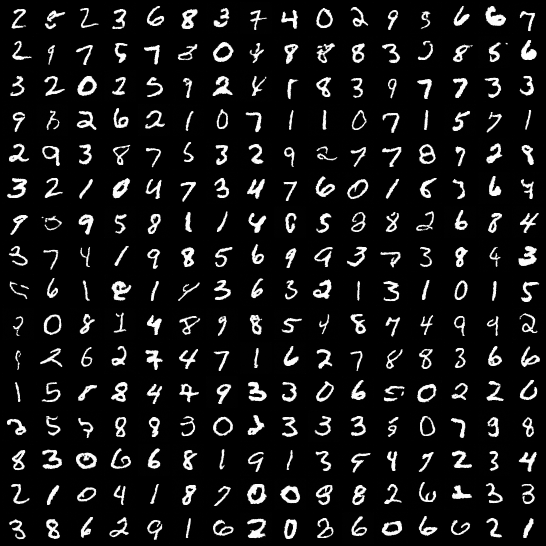 2 8 2 3 6 8 3 7 4 0 2 9 5 6 6 7
2 9 7 5 7 8 0 4 8 8 8 3 2 8 5 6
3 2 0 2 5 9 2 4 1 8 3 9 7 7 3 3
9 8 2 6 2 1 0 7 1 1 0 7 1 5 7 1
2 9 3 8 7 5 3 2 9 2 7 7 8 7 2 8
3 2 1 0 4 7 3 4 7 6 0 1 8 3 6 7
9 0 9 5 8 1 1 4 0 5 8 8 2 6 8 4
3 7 4 1 9 8 5 6 9 9 3 7 3 8 4 3
5 6 1 8 1 8 3 6 3 2 1 3 1 0 1 5
9 0 8 1 4 8 9 8 5 4 8 7 4 9 9 2
9 2 6 2 7 4 7 1 6 2 7 8 8 3 6 6
1 5 8 8 4 7 9 3 3 0 6 5 0 2 2 0
2 5 5 8 8 3 0 2 3 3 3 5 0 7 9 8
8 3 0 6 6 8 1 9 1 3 5 4 7 2 3 4
2 1 0 4 1 8 7 0 0 8 8 2 6 1 3 3
3 8 6 2 9 1 6 2 0 3 6 0 6 0 2 1